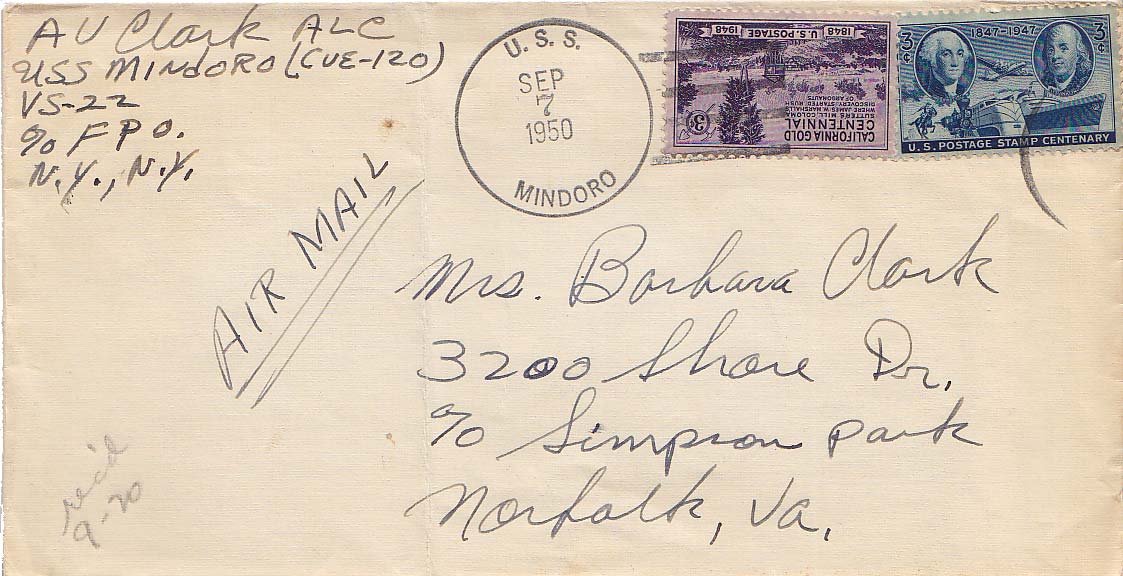 AU Clark ALC
USS MINDORO (CUE-120)
VS-22
℅ F P O.
N.Y., N.Y.
U. S. S.
SEP
7
1950
MINDORO
1848 1948
U.S. POSTAGE
CALIFORNIA GOLD
CENTENNIAL
SUTTER'S MILL, COLOMA
WHERE JAMES W. MARSHALL'S
DISCOVERY STARTED RUSH
OF ARGONAUTS
3¢
3¢
1847-1947
3¢
U.S. POSTAGE STAMP CENTENARY
AIR MAIL
Mrs. Barbara Clark
3200 Shore Dr.
℅ Simpson Park
Norfolk, Va.
rec'd
9-20